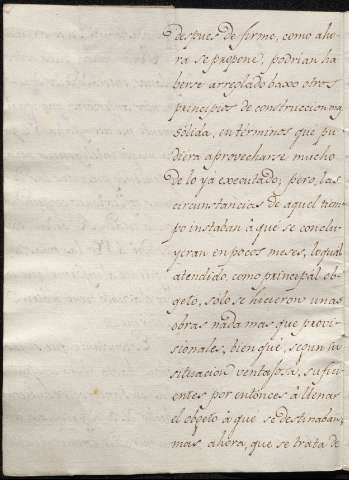 despues de firme, como aho
ra se propone, podrian ha
berse arreglado baxo otros
principios de construccion mas
sólida, en términos que pu
diera aprovecharse mucho
de lo ya executado; pero, las
circunstancias de aquel tiem
po instaban à que se conclu
yeran en pocos meses, lo qual
atendido, como principal ob
geto, solo se hicieron unas
obras nada mas que provi
sionales, bien que, segun su
situacion ventajosa, sufici
entes por entónces à llenar
el objeto à que se destinaban;
mas ahora, que se trata de